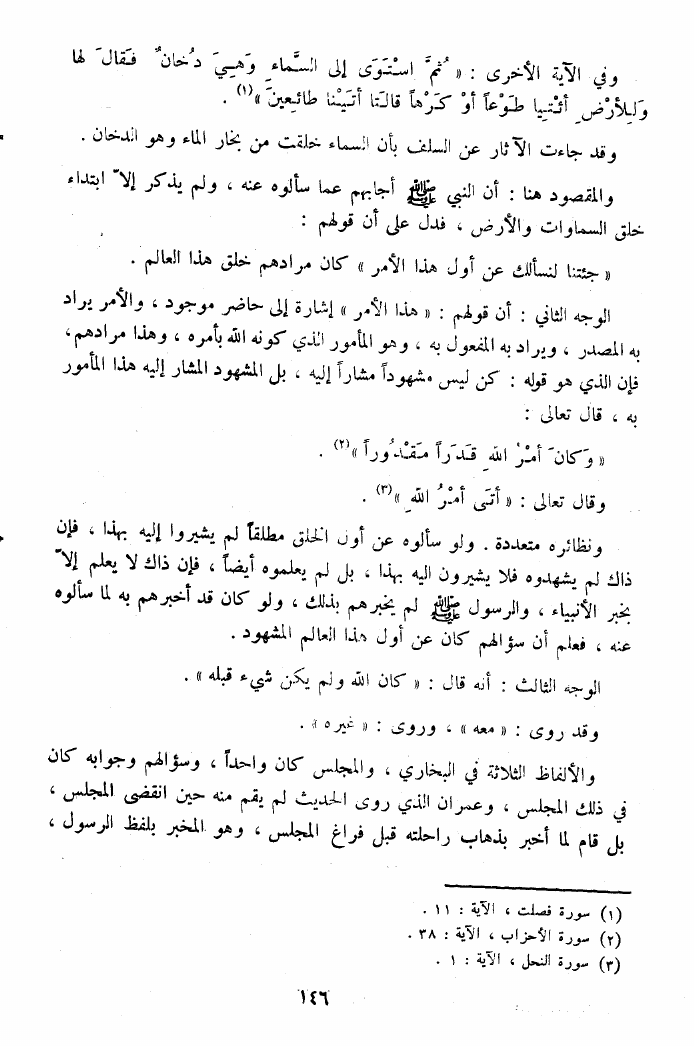 وفي الآية الأخرى : « ثُمَّ اسْتَوَى إلى السَّماءِ وَهِيَ دُخانٌ فَقالَ لها
وَلِلأَرْضِ ائْتِيا طَوْعاً أوْ كَرْهاً قالَتا أتَيْنا طائِعِينَ »(١) .
وقد جاءت الآثار عن السلف بأن السماء خلقت من بخار الماء وهو الدخان .
والمقصود هنا : أن النبي ﷺ أجابهم عما سألوه عنه ، ولم يذكر إلاّ ابتداء
خلق السماوات والأرض ، فدل على أن قولهم :
« جئتنا لنسألك عن أول هذا الأمر » كان مرادهم خلق هذا العالم .
الوجه الثاني : أن قولهم : « هذا الأمر » إشارة إلى حاضر موجود ، والأمر يراد
به المصدر ، ويراد به المفعول به ، وهو المأمور الذي كونه الله بأمره ، وهذا مرادهم ،
فإن الذي هو قوله : كن ليس مشهوداً مشاراً إليه ، بل المشهود المشار إليه هذا المأمور
به ، قال تعالى :
« وَكانَ أمْرُ اللهِ قَدَراً مَقْدُوراً »(٢) .
وقال تعالى : « أتَى أمْرُ اللهِ »(٣) .
ونظائره متعددة . ولو سألوه عن أول الخلق مطلقاً لم يشيروا إليه بهذا ، فإن
ذاك لم يشهدوه فلا يشيرون اليه بهذا ، بل لم يعلموه أيضاً ، فإن ذاك لا يعلم إلاّ
بخبر الأنبياء ، والرسول ﷺ لم يخبرهم بذلك ، ولو كان قد أخبرهم به لما سألوه
عنه ، فعلم أن سؤالهم كان عن أول هذا العالم المشهود .
الوجه الثالث : أنه قال : « كان الله ولم يكن شيء قبله » .
وقد روى : « معه » ، وروى : « غيره » .
والألفاظ الثلاثة في البخاري ، والمجلس كان واحداً ، وسؤالهم وجوابه كان
في ذلك المجلس ، وعمران الذي روى الحديث لم يقم منه حين انقضى المجلس ،
بل قام لما أخبر بذهاب راحلته قبل فراغ المجلس ، وهو المخبر بلفظ الرسول ،
(١) سورة فصلت ، الآية : ١١ .
(٢) سورة الأحزاب ، الآية : ٣٨ .
(٣) سورة النحل ، الآية : ١ .
١٤٦